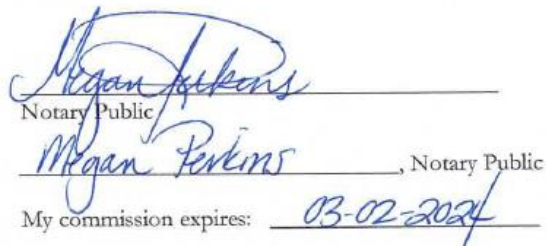 Megan Perkins
Notary Public
Megan Perkins, Notary Public
My commission expires: 03-02-2024